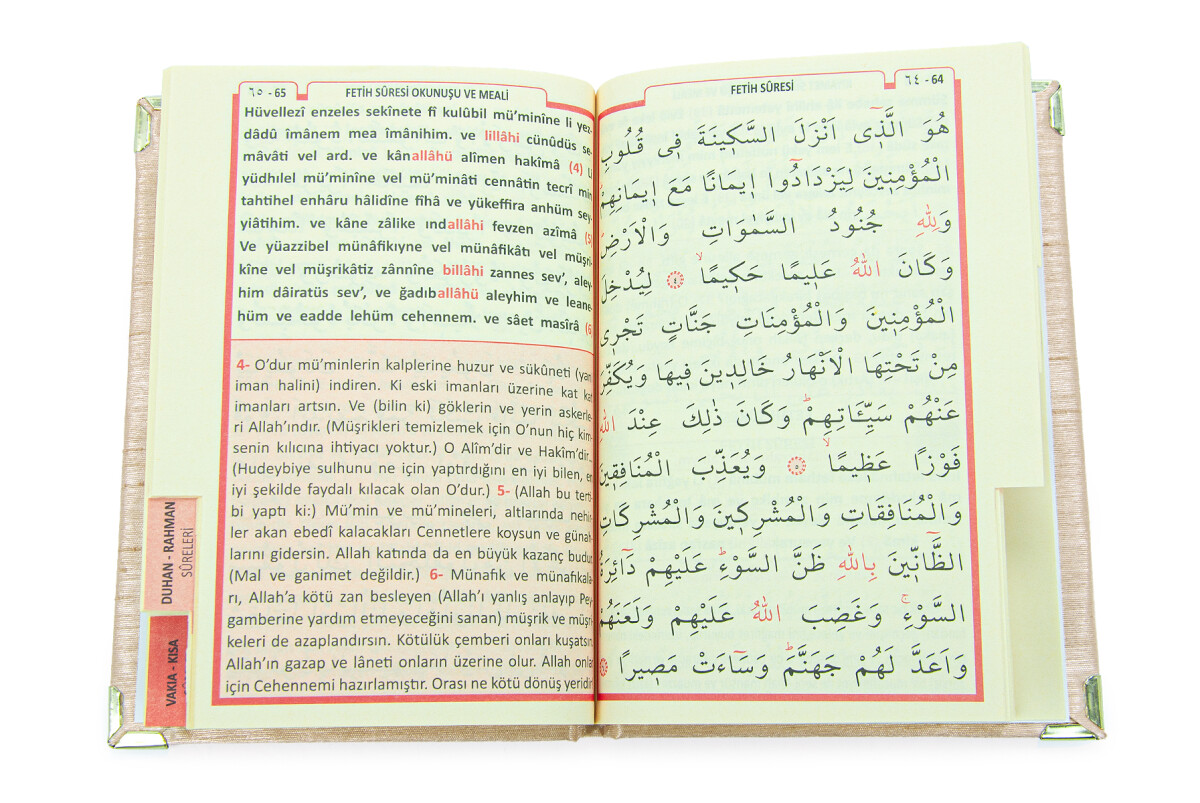 ٦٥ - 65
FETİH SÛRESİ OKUNUŞU VE MEALİ
Hüvellezî enzeles sekînete fî kulûbil mü’minîne li yez-
dâdû îmânem mea îmânihim. ve lillâhi cünûdüs se-
mâvâti vel ard. ve kânallâhü alîmen hakîmâ (4) Li
yüdhılel mü’minîne vel mü’minâti cennâtin tecrî min
tahtihel enhâru hâlidîne fîhâ ve yükeffira anhüm sey-
yiâtihim. ve kâne zâlike ındallâhi fevzen azîmâ (5)
Ve yüazzibel münâfikıyne vel münâfikâtı vel müşri-
kîne vel müşrikâtiz zânnîne billâhi zannes sev’, aley-
him dâiratüs sev’, ve ğadıballâhü aleyhim ve leane-
hüm ve eadde lehüm cehennem. ve sâet masîrâ (6)
4- O’dur mü’minlerin kalplerine huzur ve sükûneti (yani
iman halini) indiren. Ki eski imanları üzerine kat kat
imanları artsın. Ve (bilin ki) göklerin ve yerin askerle-
ri Allah’ındır. (Müşrikleri temizlemek için O’nun hiç kim-
senin kılıcına ihtiyacı yoktur.) O Alîm’dir ve Hakîm’dir...
(Hudeybiye sulhunu ne için yaptırdığını en iyi bilen, en
iyi şekilde faydalı kılacak olan O’dur.) 5- (Allah bu terti-
bi yaptı ki:) Mü’min ve mü’mineleri, altlarında nehir-
ler akan ebedî kalacakları Cennetlere koysun ve günah-
larını gidersin. Allah katında da en büyük kazanç budur.
(Mal ve ganimet değildir.) 6- Münafık ve münafıkala-
rı, Allah’a kötü zan besleyen (Allah’ı yanlış anlayıp Pey-
gamberine yardım etmeyeceğini sanan) müşrik ve müşri-
keleri de azaplandırsın. Kötülük çemberi onları kuşatsın.
Allah’ın gazap ve lâneti onların üzerine olur. Allah onlar
için Cehennemi hazırlamıştır. Orası ne kötü dönüş yeridir.
DUHAN - RAHMAN
SÛRELERİ
VAKIA - KISA
FETİH SÛRESİ
٦٤ - 64
هُوَ الَّذ۪ٓي اَنْزَلَ السَّك۪ينَةَ ف۪ي قُلُوبِ
الْمُؤْمِن۪ينَ لِيَزْدَادُٓوا ا۪يمَانًا مَعَ ا۪يمَانِهِمْ
وَلِلّٰهِ جُنُودُ السَّمٰوَاتِ وَالْاَرْضِ
وَكَانَ اللّٰهُ عَل۪يمًا حَك۪يمًاۙ ﴿٤﴾ لِيُدْخِلَ
الْمُؤْمِن۪ينَ وَالْمُؤْمِنَاتِ جَنَّاتٍ تَجْر۪ي
مِنْ تَحْتِهَا الْاَنْهَارُ خَالِد۪ينَ ف۪يهَا وَيُكَفِّرَ
عَنْهُمْ سَيِّـَٔاتِهِمْۜ وَكَانَ ذٰلِكَ عِنْدَ اللّٰهِ
فَوْزًا عَظ۪يمًاۙ ﴿٥﴾ وَيُعَذِّبَ الْمُنَافِق۪ينَ
وَالْمُنَافِقَاتِ وَالْمُشْرِك۪ينَ وَالْمُشْرِكَاتِ
الظَّٓانّ۪ينَ بِاللّٰهِ ظَنَّ السَّوْءِۜ عَلَيْهِمْ دَٓائِرَةُ
السَّوْءِۚ وَغَضِبَ اللّٰهُ عَلَيْهِمْ وَلَعَنَهُمْ
وَاَعَدَّ لَهُمْ جَهَنَّمَۜ وَسَٓاءَتْ مَص۪يرًا ﴿٦﴾